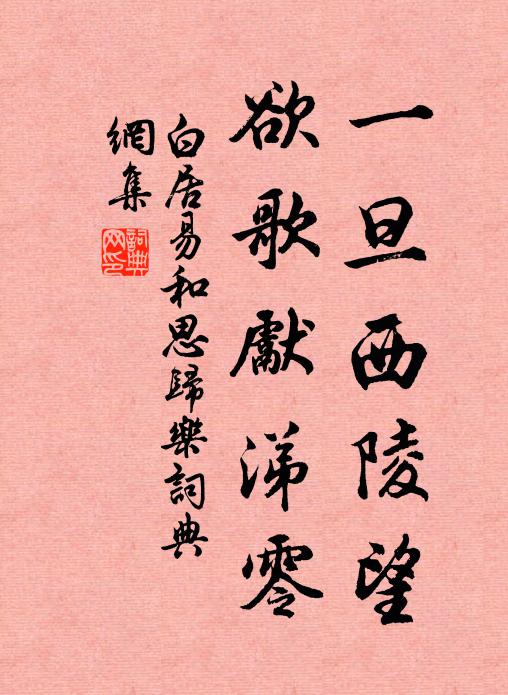 一旦西陵望
欲歌獻涕零
白居易和思歸樂詞典
網集
詞典
网印